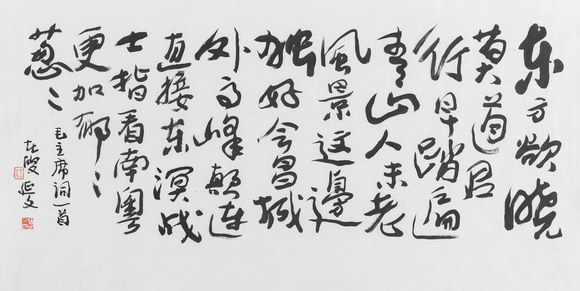 东方欲晓
莫道君
行早踏遍
青山人未老
風景这邊
独好会昌城
外高峰颠连
直接东溟战
士指看南粤
更加郁々
葱々
毛主席词一首
延文